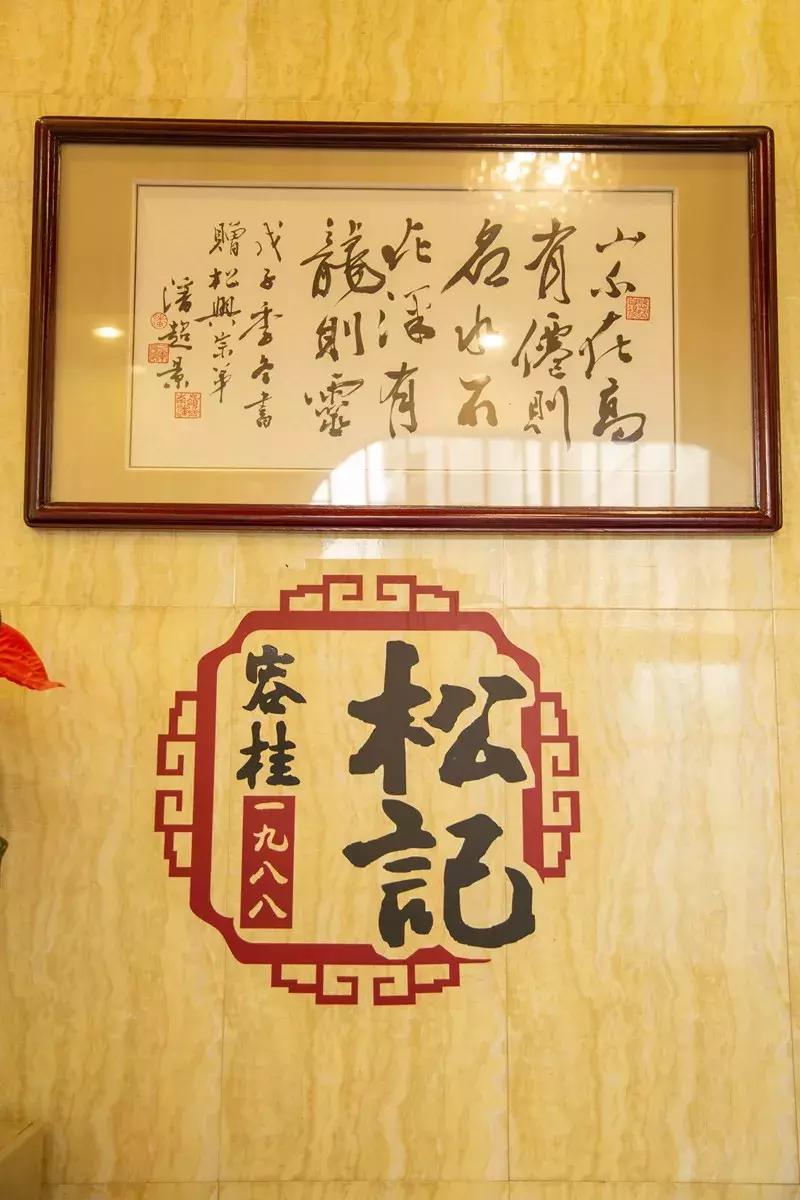 山不在高
有僊則
名水不
在深有
龍則靈
戊子季冬書
贈松興宗弟
潘超景
松記
容桂
一九八八